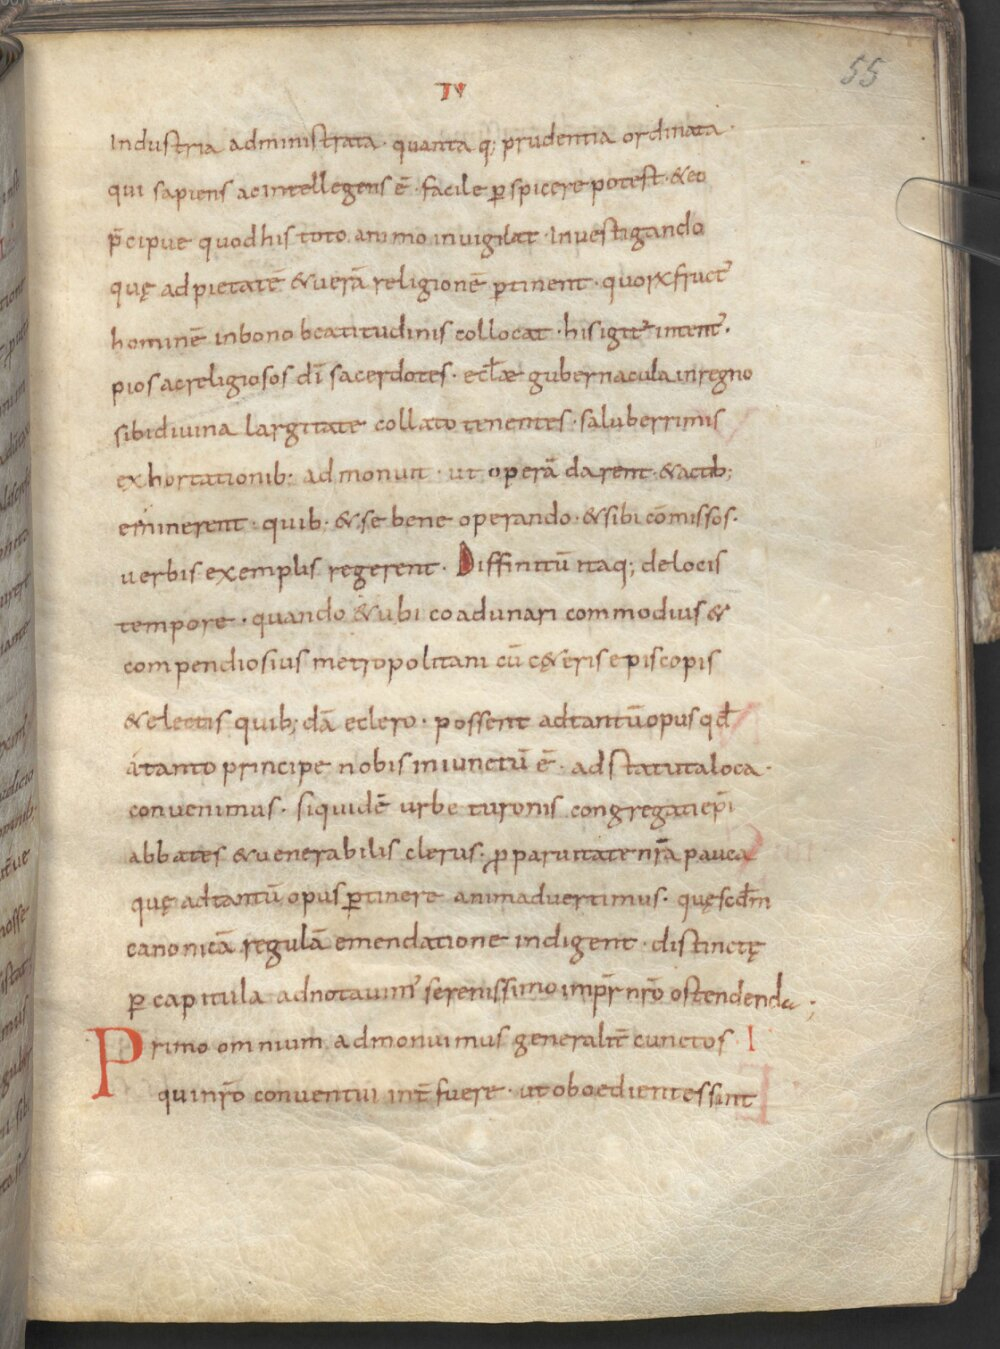 55
IV
Industria administrata · quanta q; prudentia ordinata ·
qui sapiens ac intellegens ē · facile p̄spicere potest · & eo
p̄cipue quod his toto animo invigilat · Investigando
quę ad pietatē & uerā religionē p̄tinent · quorꝝ fruct᾽
hominē in bono beatitudinis collocat · his igit᾽ intent᾽ ·
pios ac religiosos dī sacerdotes · eccl̄æ gubernacula in regno
sibi divina largitate collato tenentes · saluberrimis
exhortationib; admonuit · ut operā darent · & actib;
eminerent · quib; & se bene operando · & sibi cōmissos ·
uerbis exemplis regerent · Diffinitū itaq; de locis
tempore · quando & ubi coadunari commodius &
compendiosius metropolitani cū c&eris episcopis
& electis quib;dā e clero · possent ad tantū opus qd̄
á tanto principe nobis iniunctū ē · ad statuta loca ·
convenimus · siquidē urbe turonis congregati ep̄i
abbates & venerabilis clerus · ꝓ parvitate nr̄a pauca
quę ad tantū opus p̄tinere animadvertimus · quę scdm̄
canonicā regulā emendatione indigent · distinctę
p̄ capitula adnotavim᾽ serenissimo imp̄r nr̄o ostendenda ;
Primo omnium admonuimus generalit̄ cunctos I
qui nr̄o conventui int̄fuere · ut oboedientes sint